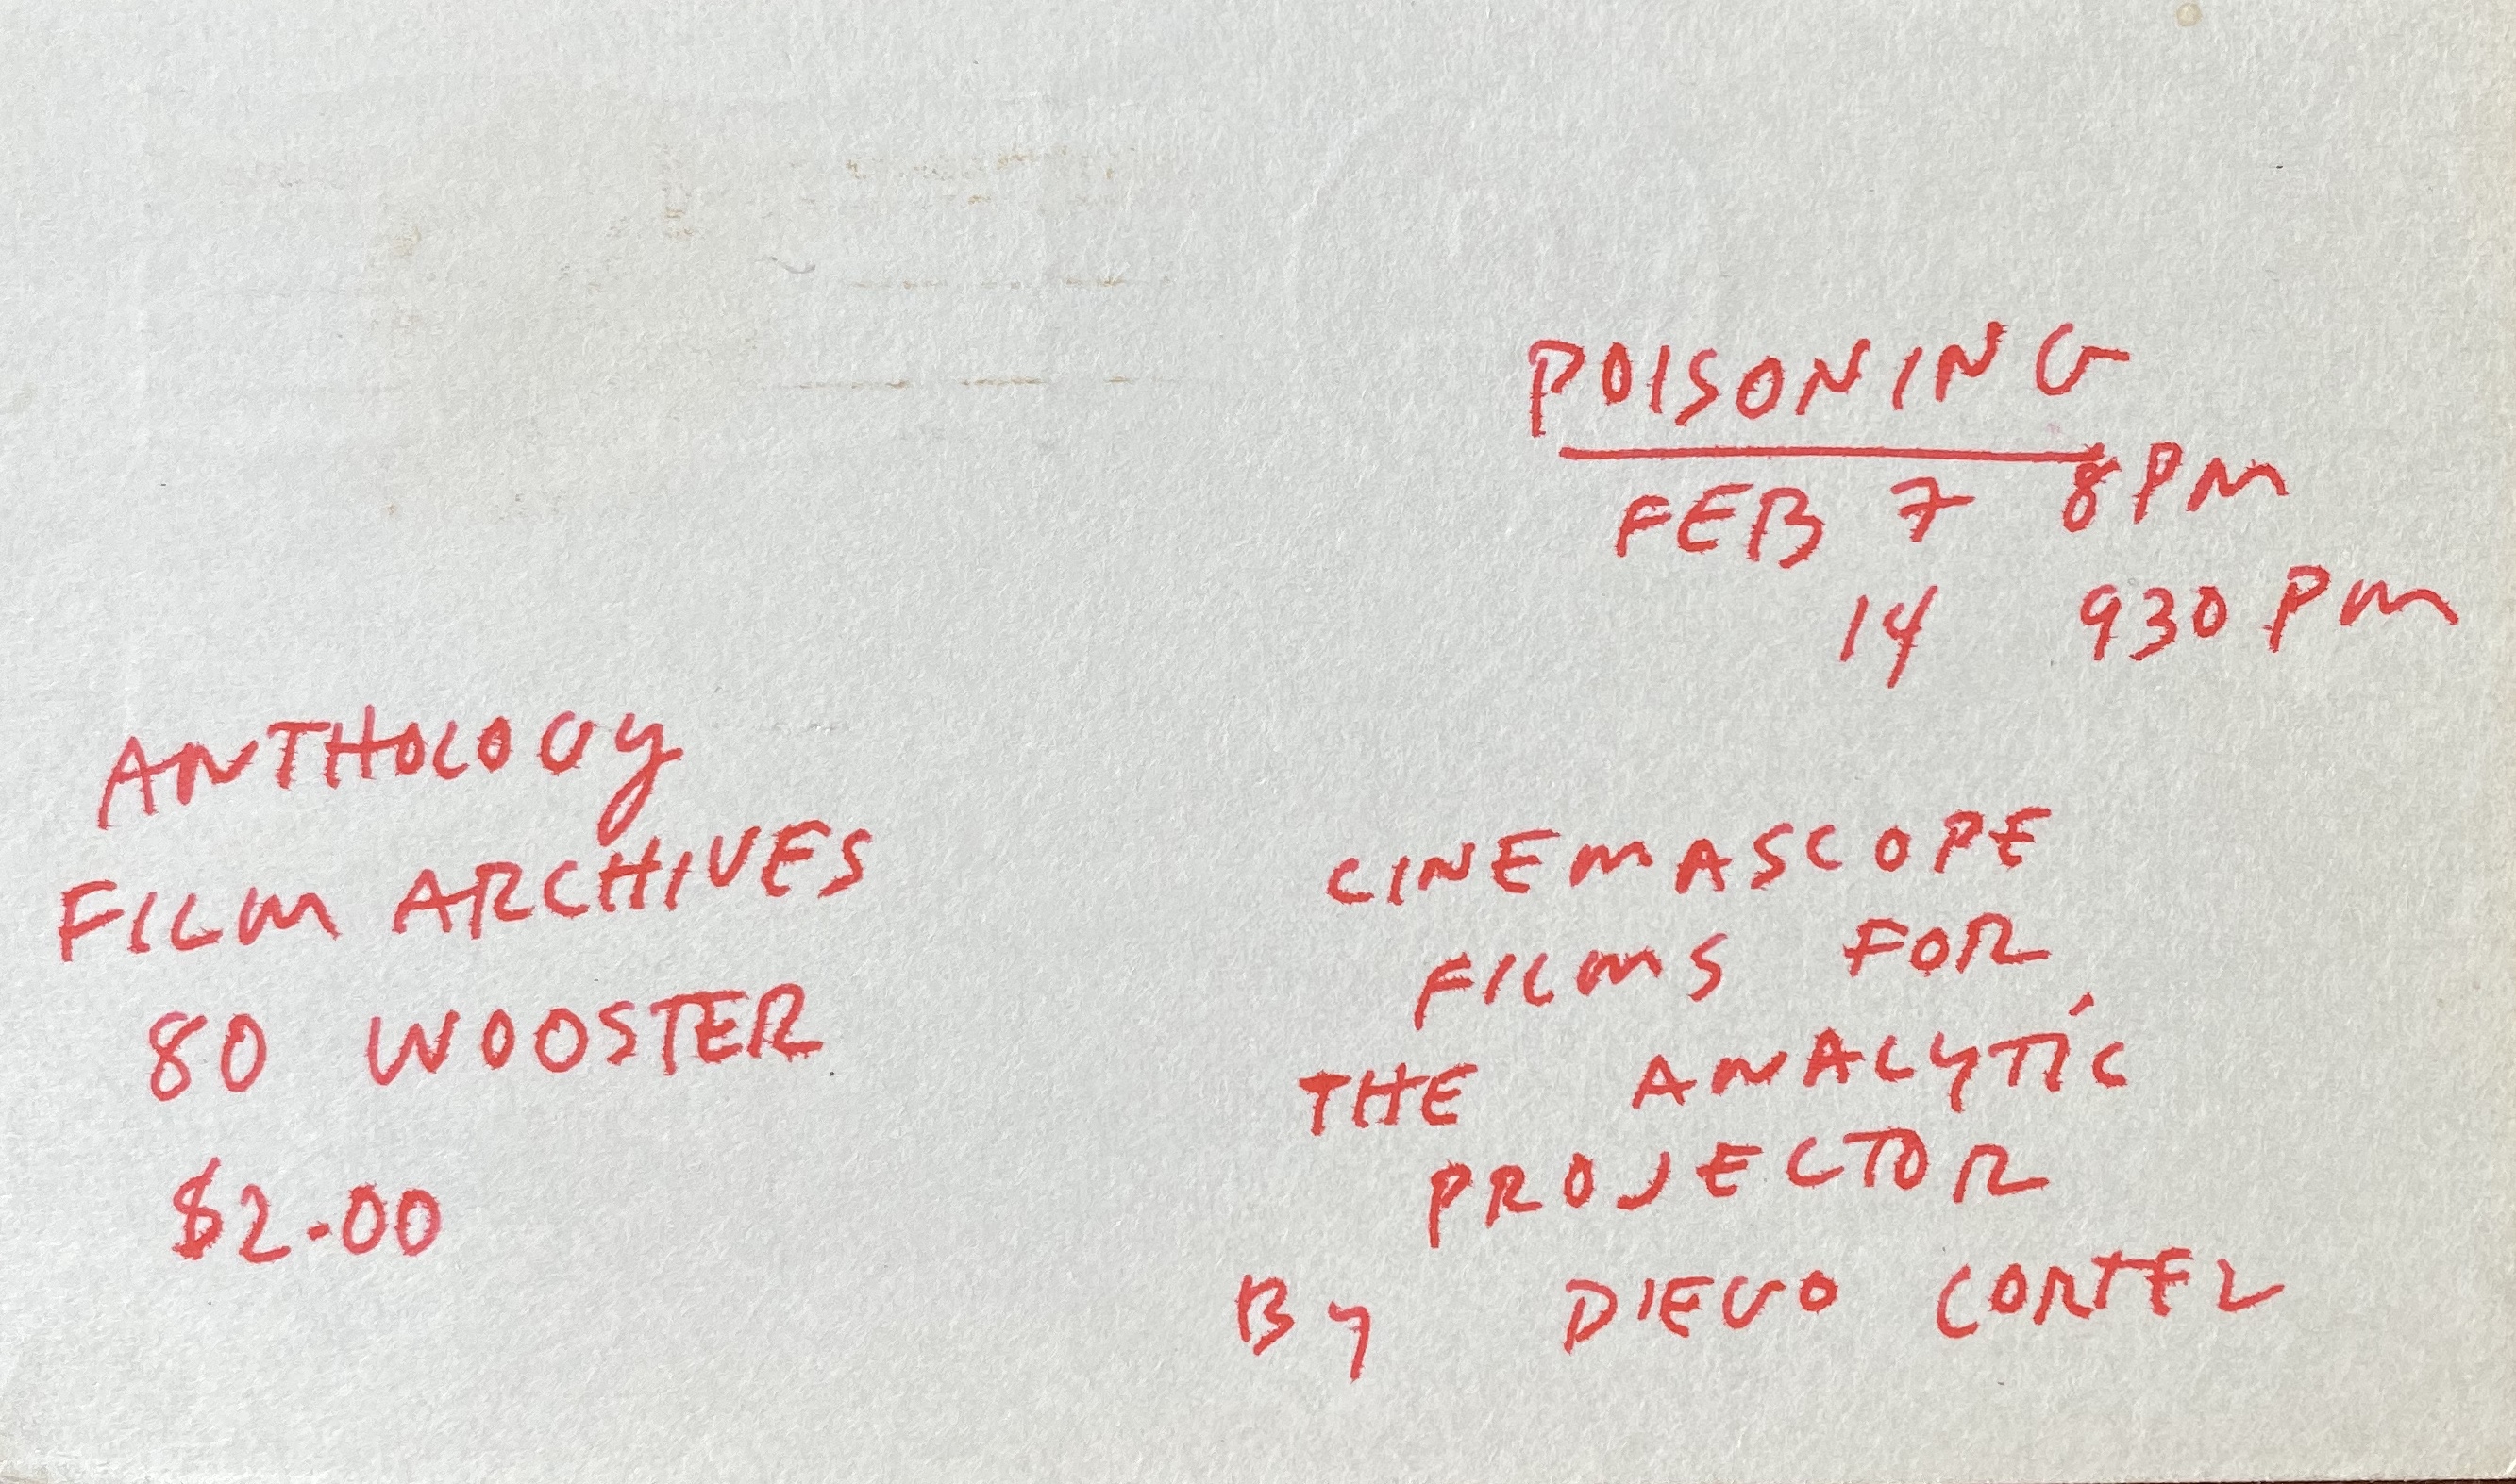 POISONING
FEB 7 8PM
14 930 PM
ANTHOLOGY
FILM ARCHIVES
80 WOOSTER
$2.00
CINEMASCOPE
FILMS FOR
THE ANALYTIC
PROJECTOR
BY DIEGO CORTEZ